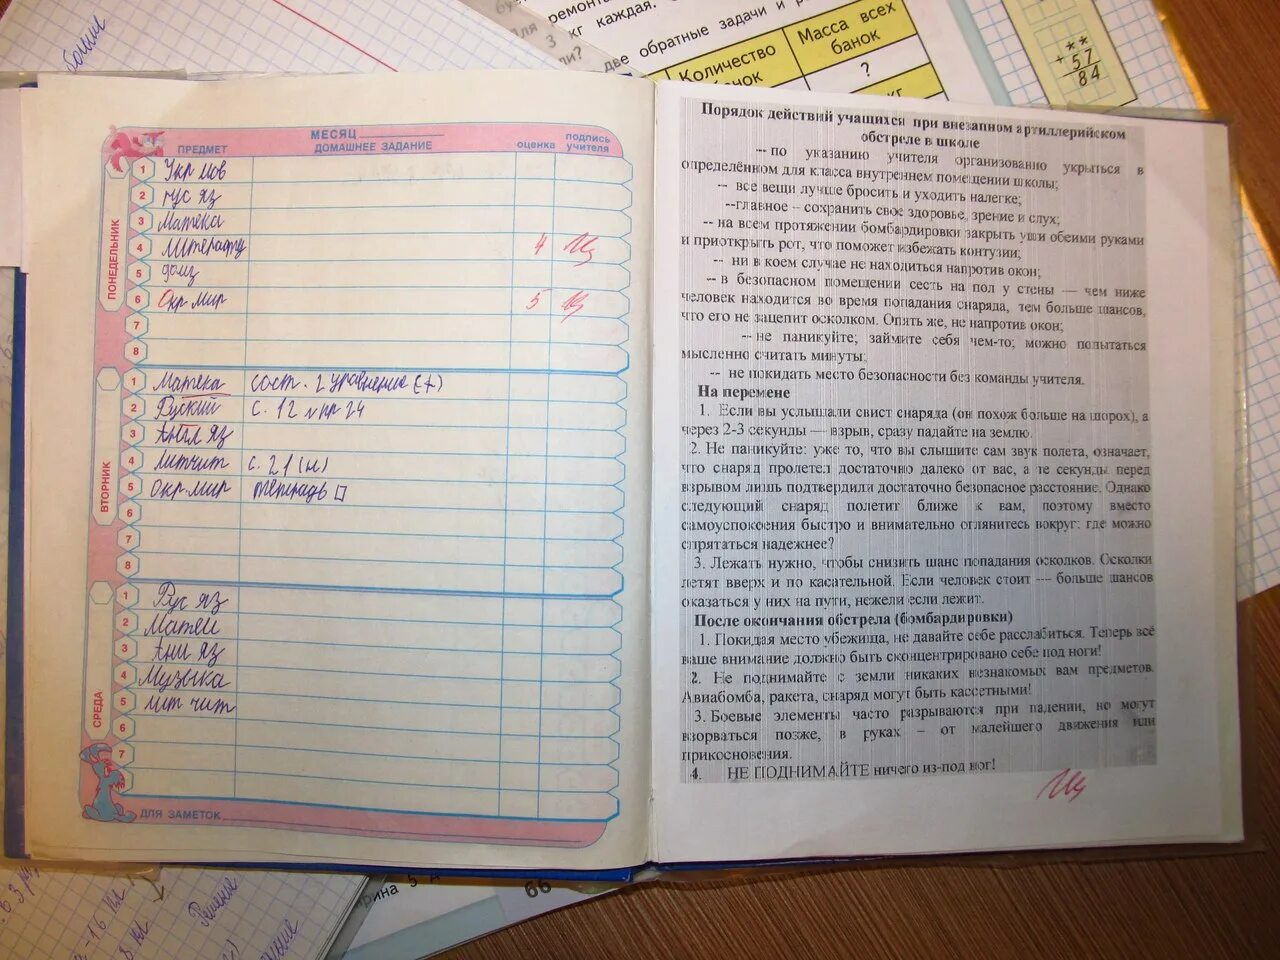 больше
ремонта
кг каждая.
две обратные задачи и
Количество
банок
Масса всех
банок
?
кг
**
+ 57
84
МЕСЯЦ
ПРЕДМЕТ
ДОМАШНЕЕ ЗАДАНИЕ
оценка
подпись
учителя
ПОНЕДЕЛЬНИК
1 Укр мов
2 рус яз
3 Матека
4 Литерату 4
5 физ
6 Окр мир 5
7
8
ВТОРНИК
1 Матека сост. 2 уравнение (+)
2 Руский с. 12 упр 24
3 Англ яз
4 Литчит с. 21 (н)
5 Окр-мир тетрадь
6
7
8
СРЕДА
1 Рус яз
2 Матем
3 Анг яз
4 Музыка
5 Лит чит
6
7
ДЛЯ ЗАМЕТОК
Порядок действий учащихся при внезапном артиллерийском
обстреле в школе
-- по указанию учителя организованно укрыться в
определённом для класса внутреннем помещении школы;
-- все вещи лучше бросить и уходить налегке;
--главное – сохранить свое здоровье, зрение и слух;
-- на всем протяжении бомбардировки закрыть уши обеими руками
и приоткрыть рот, что поможет избежать контузии;
-- ни в коем случае не находиться напротив окон;
-- в безопасном помещении сесть на пол у стены — чем ниже
человек находится во время попадания снаряда, тем больше шансов,
что его не зацепит осколком. Опять же, не напротив окон;
-- не паникуйте; займите себя чем-то; можно попытаться
мысленно считать минуты;
-- не покидать место безопасности без команды учителя.
На перемене
1. Если вы услышали свист снаряда (он похож больше на шорох), а
через 2-3 секунды — взрыв, сразу падайте на землю.
2. Не паникуйте: уже то, что вы слышите сам звук полета, означает,
что снаряд пролетел достаточно далеко от вас, а те секунды перед
взрывом лишь подтвердили достаточно безопасное расстояние. Однако
следующий снаряд полетит ближе к вам, поэтому вместо
самоуспокоения быстро и внимательно оглянитесь вокруг: где можно
спрятаться надежнее?
3. Лежать нужно, чтобы снизить шанс попадания осколков. Осколки
летят вверх и по касательной. Если человек стоит — больше шансов
оказаться у них на пути, нежели если лежит.
После окончания обстрела (бомбардировки)
1. Покидая место убежища, не давайте себе расслабиться. Теперь всё
ваше внимание должно быть сконцентрировано себе под ноги!
2. Не поднимайте с земли никаких незнакомых вам предметов.
Авиабомба, ракета, снаряд могут быть кассетными!
3. Боевые элементы часто разрываются при падении, но могут
взорваться позже, в руках – от малейшего движения или
прикосновения.
4. НЕ ПОДНИМАЙТЕ ничего из-под ног!
Решение
66